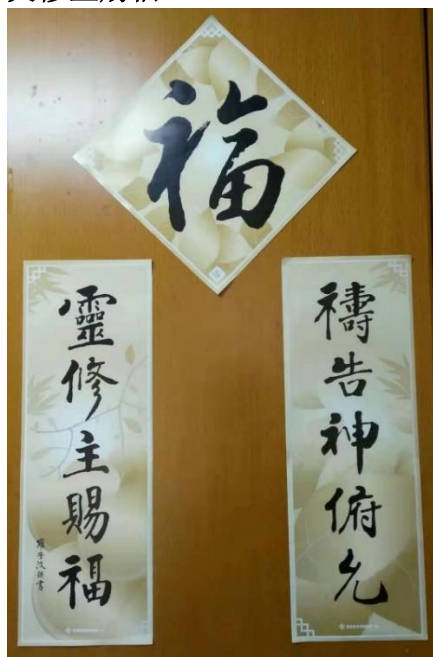 福
禱告神俯允
靈修主賜福